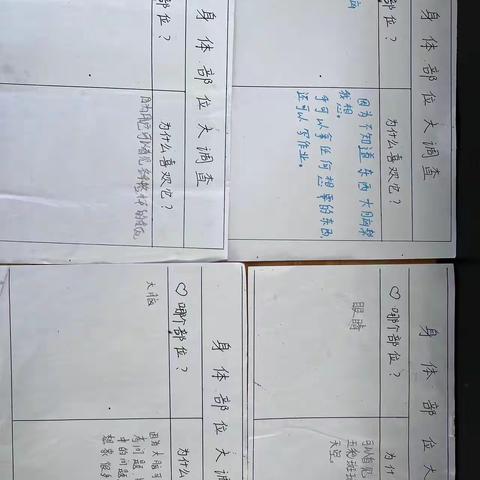 身体部位大调查
部位？
为什么喜欢它？
身体部位大调查
部位？
为什么喜欢它？
因为不知道东西大脑帮
我想。
手可以拿任何想要的东西,
还可以写作业。
身体部位大调
♡哪个部位？
大脑
为什么
因为大脑
考问题,
中的问题
想象很多
身体部位大
♡哪个部位？
眼睛
为什
可以看见
五彩斑
天空。